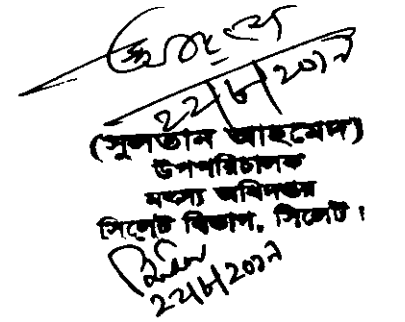 ২২/৮/২০১৭
(সুলতান আহমেদ)
উপপরিচালক
মৎস্য অধিদপ্তর
সিলেট বিভাগ, সিলেট।
২২/৮/২০১৭